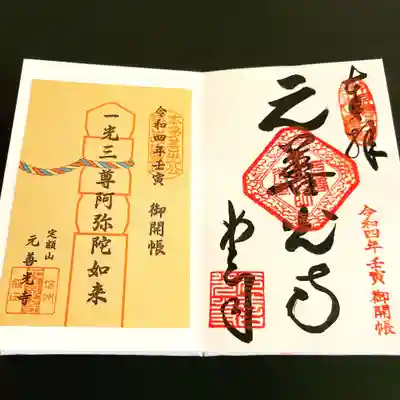 奉拝
元善光寺
令和四年 壬寅 御開帳
本多善光公
令和四年壬寅 御開帳
一光三尊阿弥陀如来
定額山
元善光寺